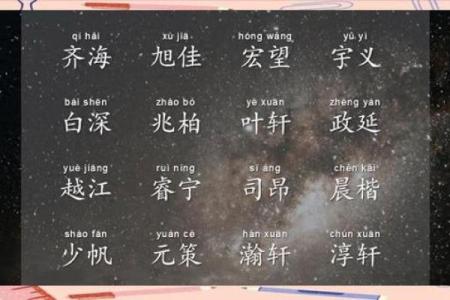 qí hǎi xù jiā hóng wàng yǔ yì
齐海 旭佳 宏望 宇义
bái shēn zhào bó yè xuān zhèng yán
白深 兆柏 叶轩 政延
yuè jiāng ruì níng sī áng chén kǎi
越江 睿宁 司昂 晨楷
shào fān yuán cè hàn xuān chún xuān
少帆 元策 瀚轩 淳轩